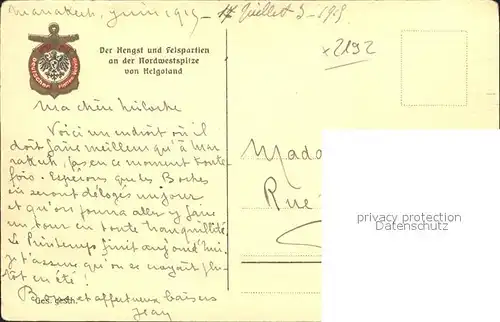 Marrakech, Juin 1915 – 14 Juillet 5 – 1915
x 2192
Deutscher Flotten-Verein
Der Hengst und Felspartien
an der Nordwestspitze
von Helgoland
Ma chère
Voici un endroit où il
doit faire meilleur qu'à Mar
rakech, pas en ce moment toute
fois. Espérons que les Boches
en seront délogés un jour
et qu'on pourra aller y faire
un tour en toute tranquillité.
Le Printemps finit aujourd'hui.
je t'assure qu'on se croyait plu-
tôt en été !
Bons et affectueux baisers
Jean
Ges. gesch.
Mada
Rue
privacy protection
Datenschutz